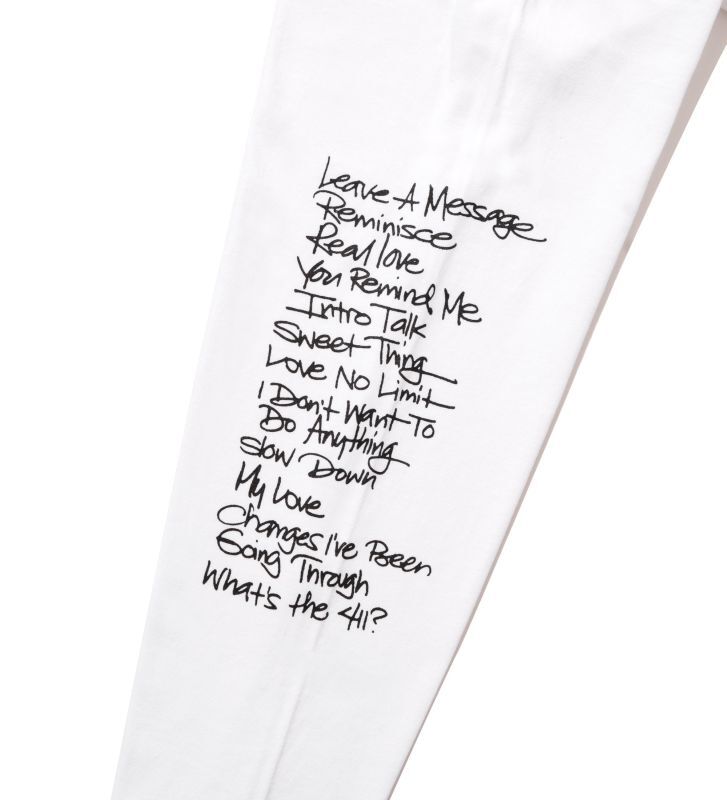 Leave A Message
Reminisce
Real love
You Remind Me
Intro Talk
Sweet Thing
Love No Limit
I Don't Want To
Do Anything
Slow Down
My Love
Changes I've Been
Going Through
What's the 411?